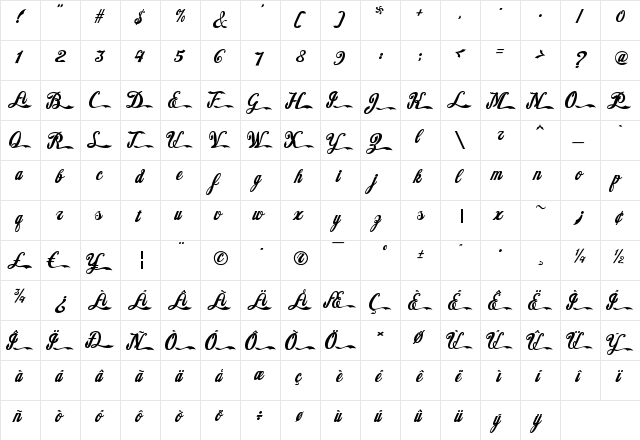 ! " # $ % & ' ( ) * + , - . / 0
1 2 3 4 5 6 7 8 9 : ; < = > ? @
A B C D E F G H I J K L M N O P
Q R S T U V W X Y Z l \ r ^ _ `
a b c d e f g h i j k l m n o p
q r s t u v w x y z s | x ~ ¢
£ € Y ¦ ¨ © ® ¯ ° ± ´ · ¸ ¼ ½
¾ ¿ À Á Â Ã Ä Å Æ Ç È É Ê Ë Ì Í
Î Ï Ð Ñ Ò Ó Ô Õ Ö × Ø Ù Ú Û Ü Ý
à á â ã ä å æ ç è é ê ë ì í î ï
ñ ò ó ô õ ö ÷ ø ù ú û ü ý ÿ